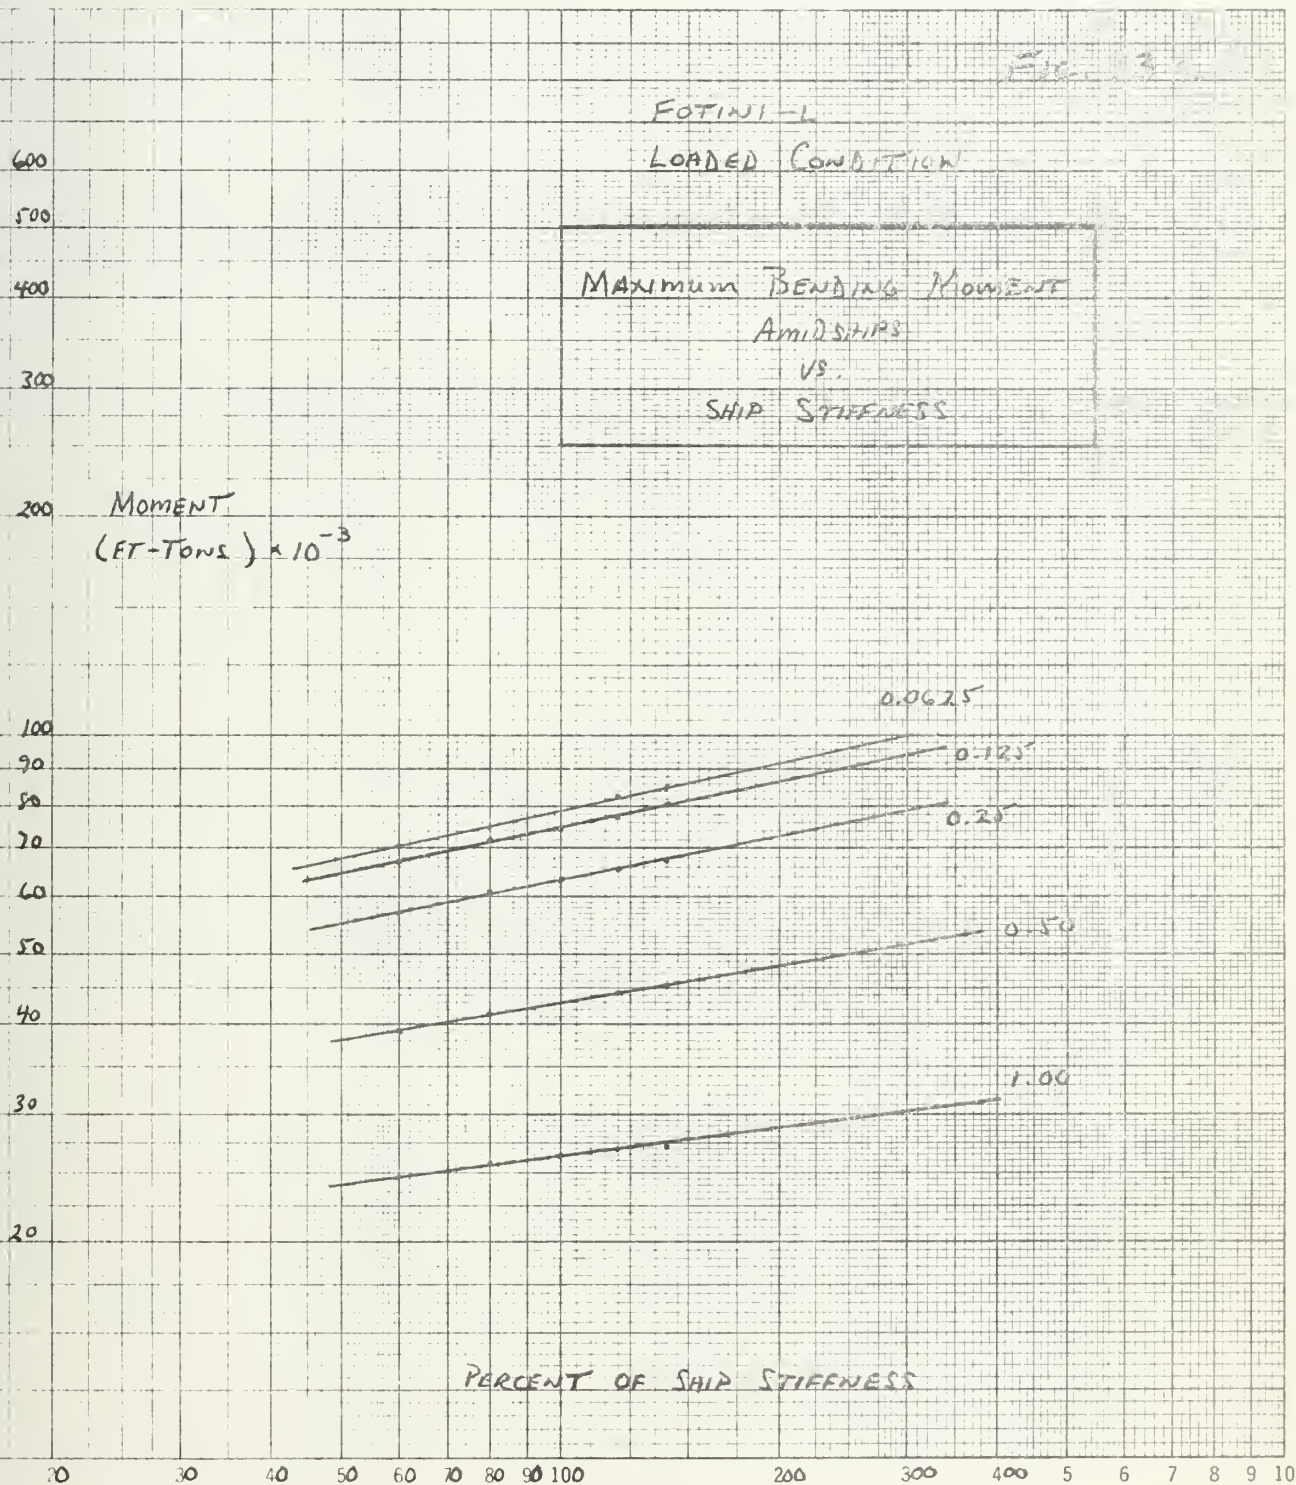 FIG. 13
FOTINI-L
LOADED CONDITION
MAXIMUM BENDING MOMENT
AMIDSHIPS
VS.
SHIP STIFFNESS
600
500
400
300
200
100
90
80
70
60
50
40
30
20
MOMENT
(FT-TONS) × 10⁻³
0.0625
0.125
0.25
0.50
1.00
PERCENT OF SHIP STIFFNESS
20 30 40 50 60 70 80 90 100 200 300 400 5 6 7 8 9 10